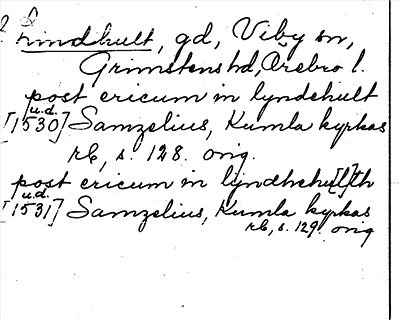 Lindhult, gd, Viby sn,
Grimstens hd, Örebro l.
post ericum in lyndehult
u.d.
[1530] Samzelius, Kumla kyrkas
rb, s. 128. orig.
post ericum in lyndhehul[l]th
u.d.
[1531] Samzelius, Kumla kyrkas
rb, s. 129. orig